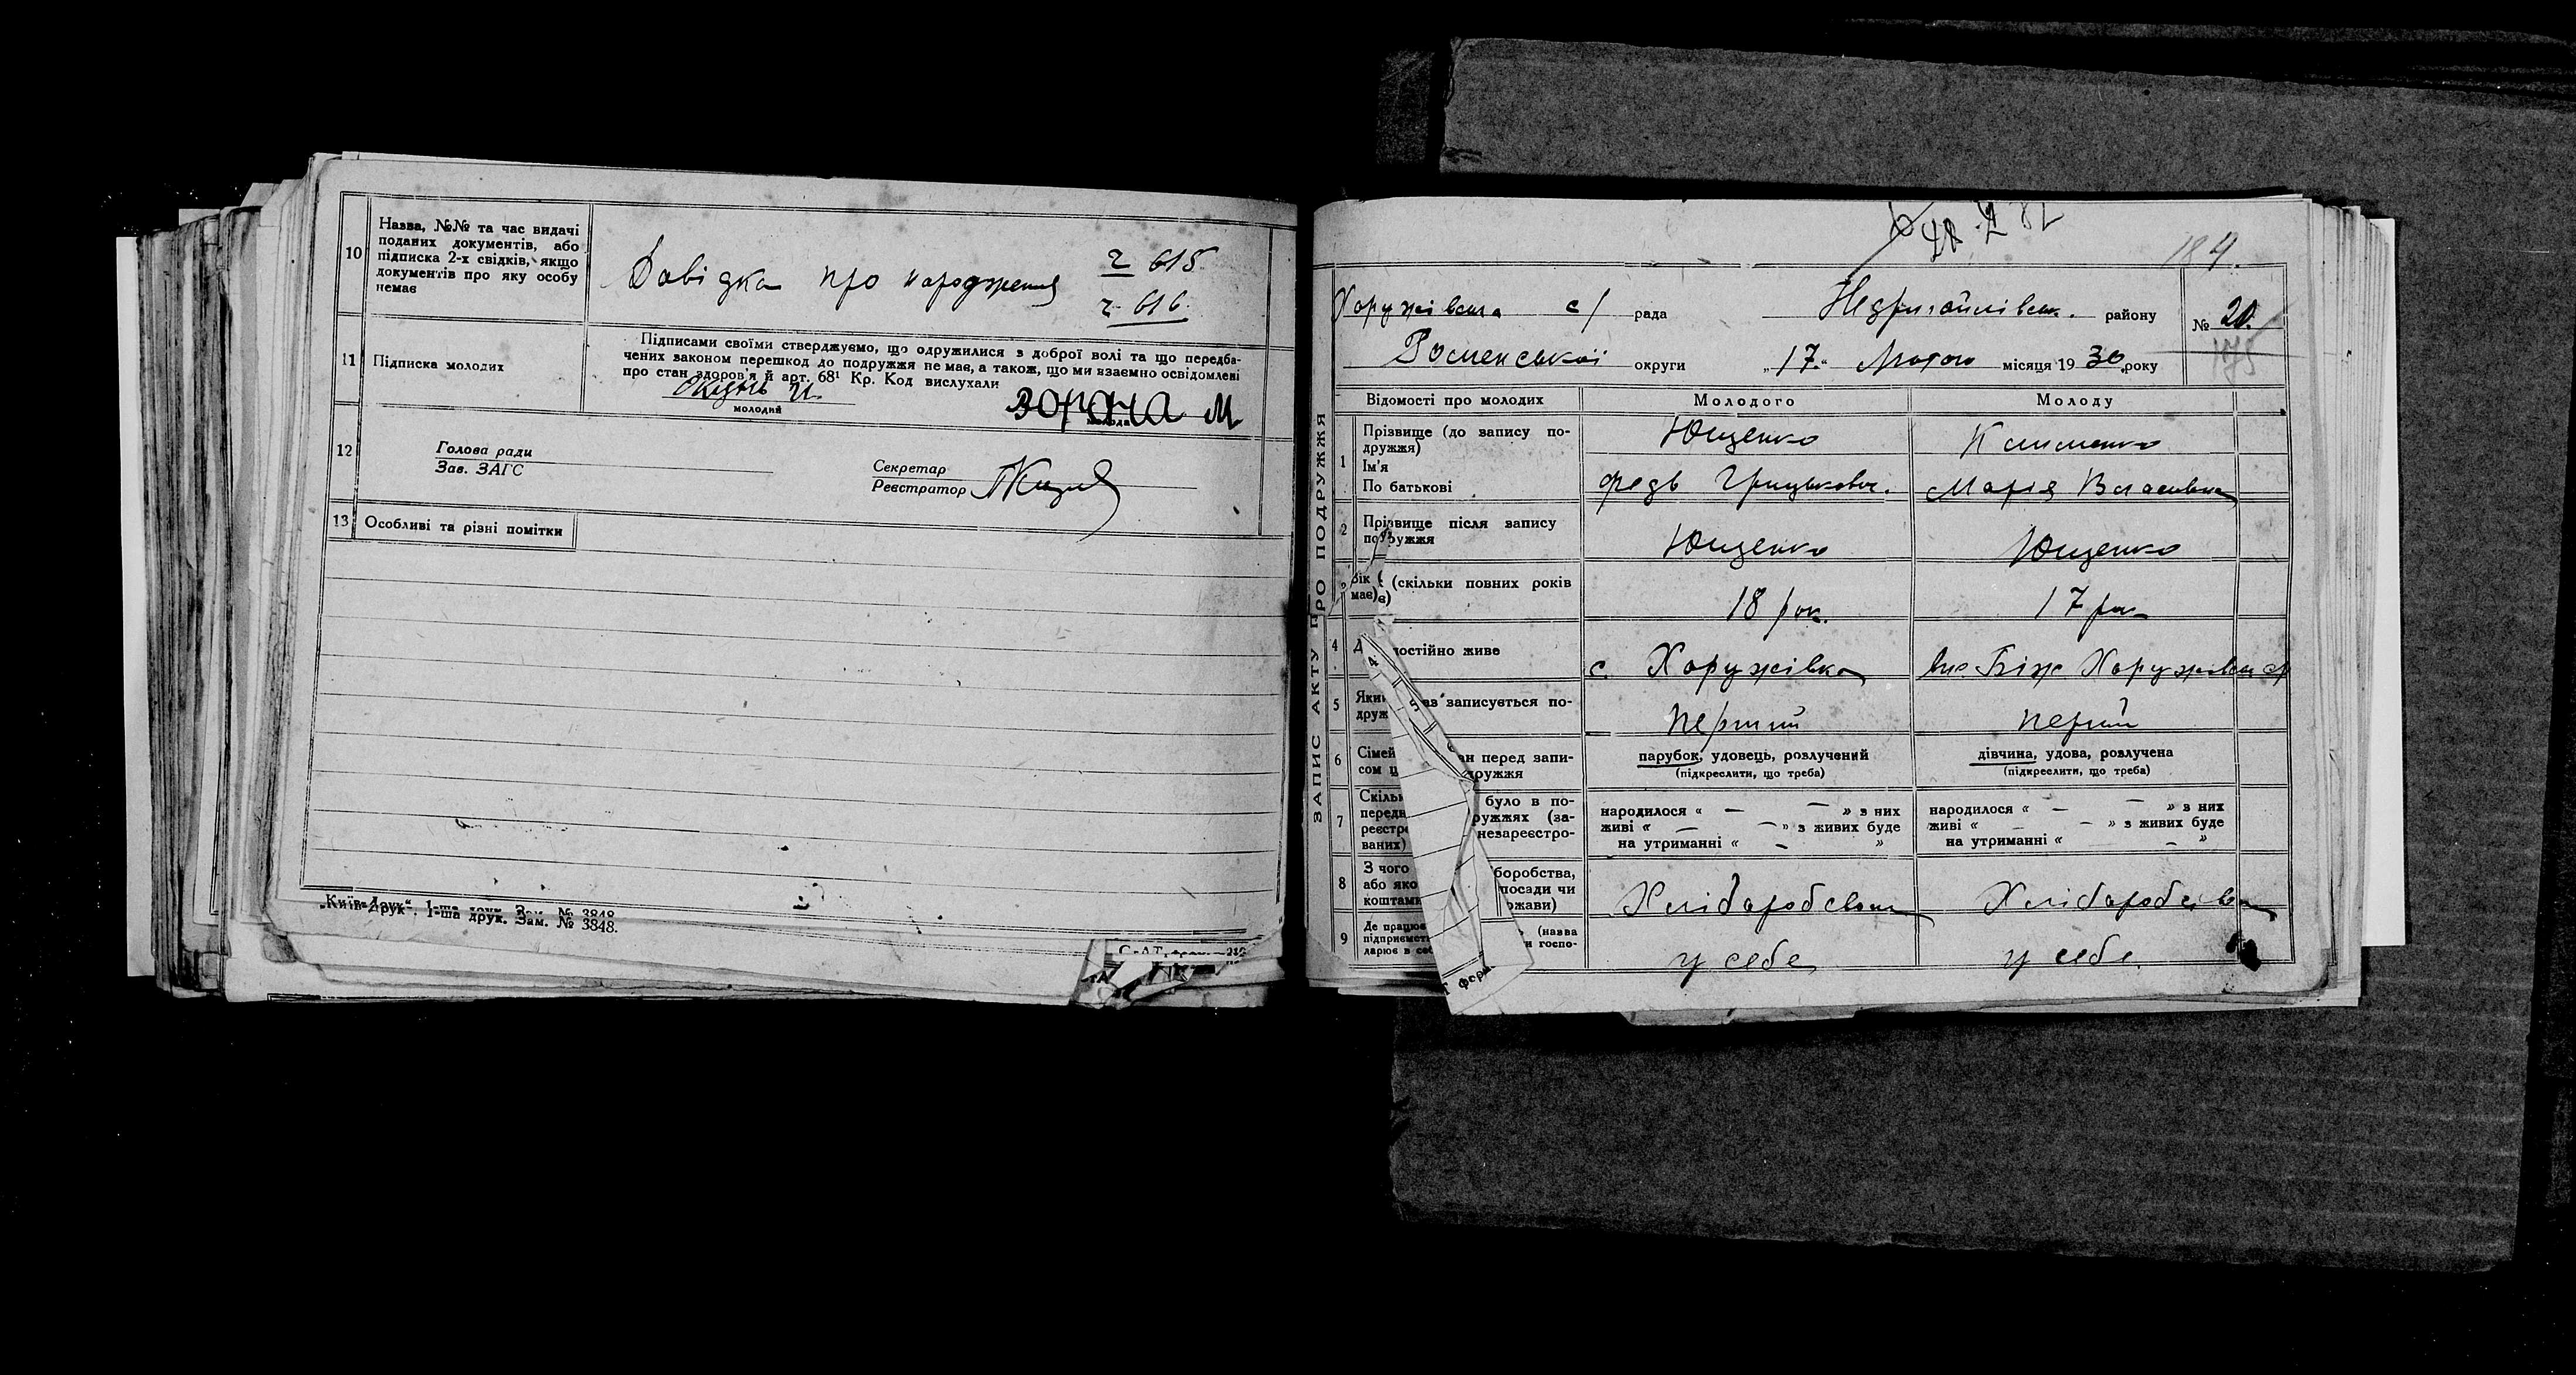 10
Назва, №№ та час видачі
поданих документів, або
підписка 2-х свідків, якщо
документів про яку особу
немає
Довідка про народження
ч 615
ч 616
11
Підписка молодих
Підписами своїми стверджуємо, що одружилися з доброї волі та що передба-
чених законом перешкод до подружжя не має, а також, що ми взаємно освідомлені
про стан здоров'я й арт. 68¹ Кр. Код вислухали
молодий
молода
М
12
Голова ради
Зав. ЗАГС
Секретар
Реєстратор
13
Особливі та різні помітки
„Київ-Друк“. 1-ша друк. Зам. № 3848.
184.
Хоружівська с/ рада
Недригайлівськ. району
№ 20.
Роменської округи
„17.“ Лютого місяця 1930 року
ЗАПИС АКТУ ПРО ПОДРУЖЖЯ
Відомості про молодих
Молодого
Молоду
1
Прізвище (до запису по-
дружжя)
Ім'я
По батькові
Ющенко
Федь Грицькович.
Клименко
Марія Власівна
2
Прізвище після запису
подружжя
Ющенко
Ющенко
(скільки повних років
має)
18 рок.
17 рок
4
постійно живе
с. Хоружівка
Біж Хоружівськ с/р
5
записується по-
друж
перший
перший
6
Сімей
ан перед запи-
сом
дружжя
парубок, удовець, розлучений
(підкреслити, що треба)
дівчина, удова, розлучена
(підкреслити, що треба)
7
Скільк
було в по-
передн
ружжях (за-
реєстро
незареєстро-
ваних)
народилося « — — » з них
живі « — — » з живих буде
на утриманні « — »
народилося « — — » з них
живі « — — » з живих буде
на утриманні « — »
8
З чого
боробства,
або яко
посади чи
коштами
ржави)
Хліборобством
Хліборобством
9
Де працює
(назва
підприємст
и госпо-
дарює в себ
у себе
у себе.